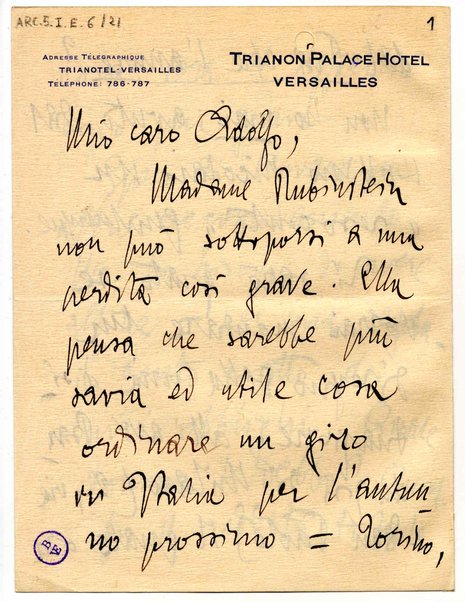 ARC.5.I.E.6/21
1
ADRESSE TÉLÉGRAPHIQUE
TRIANOTEL-VERSAILLES
TÉLÉPHONE: 786-787
TRIANON PALACE HOTEL
VERSAILLES
Mio caro Adolfo,
Madame Rubinstein
non può sottoporsi a una
perdita così grave. Ella
pensa che sarebbe più
savia ed utile cosa
ordinare un giro
in Italia per l'autun
no prossimo = Torino,
BE